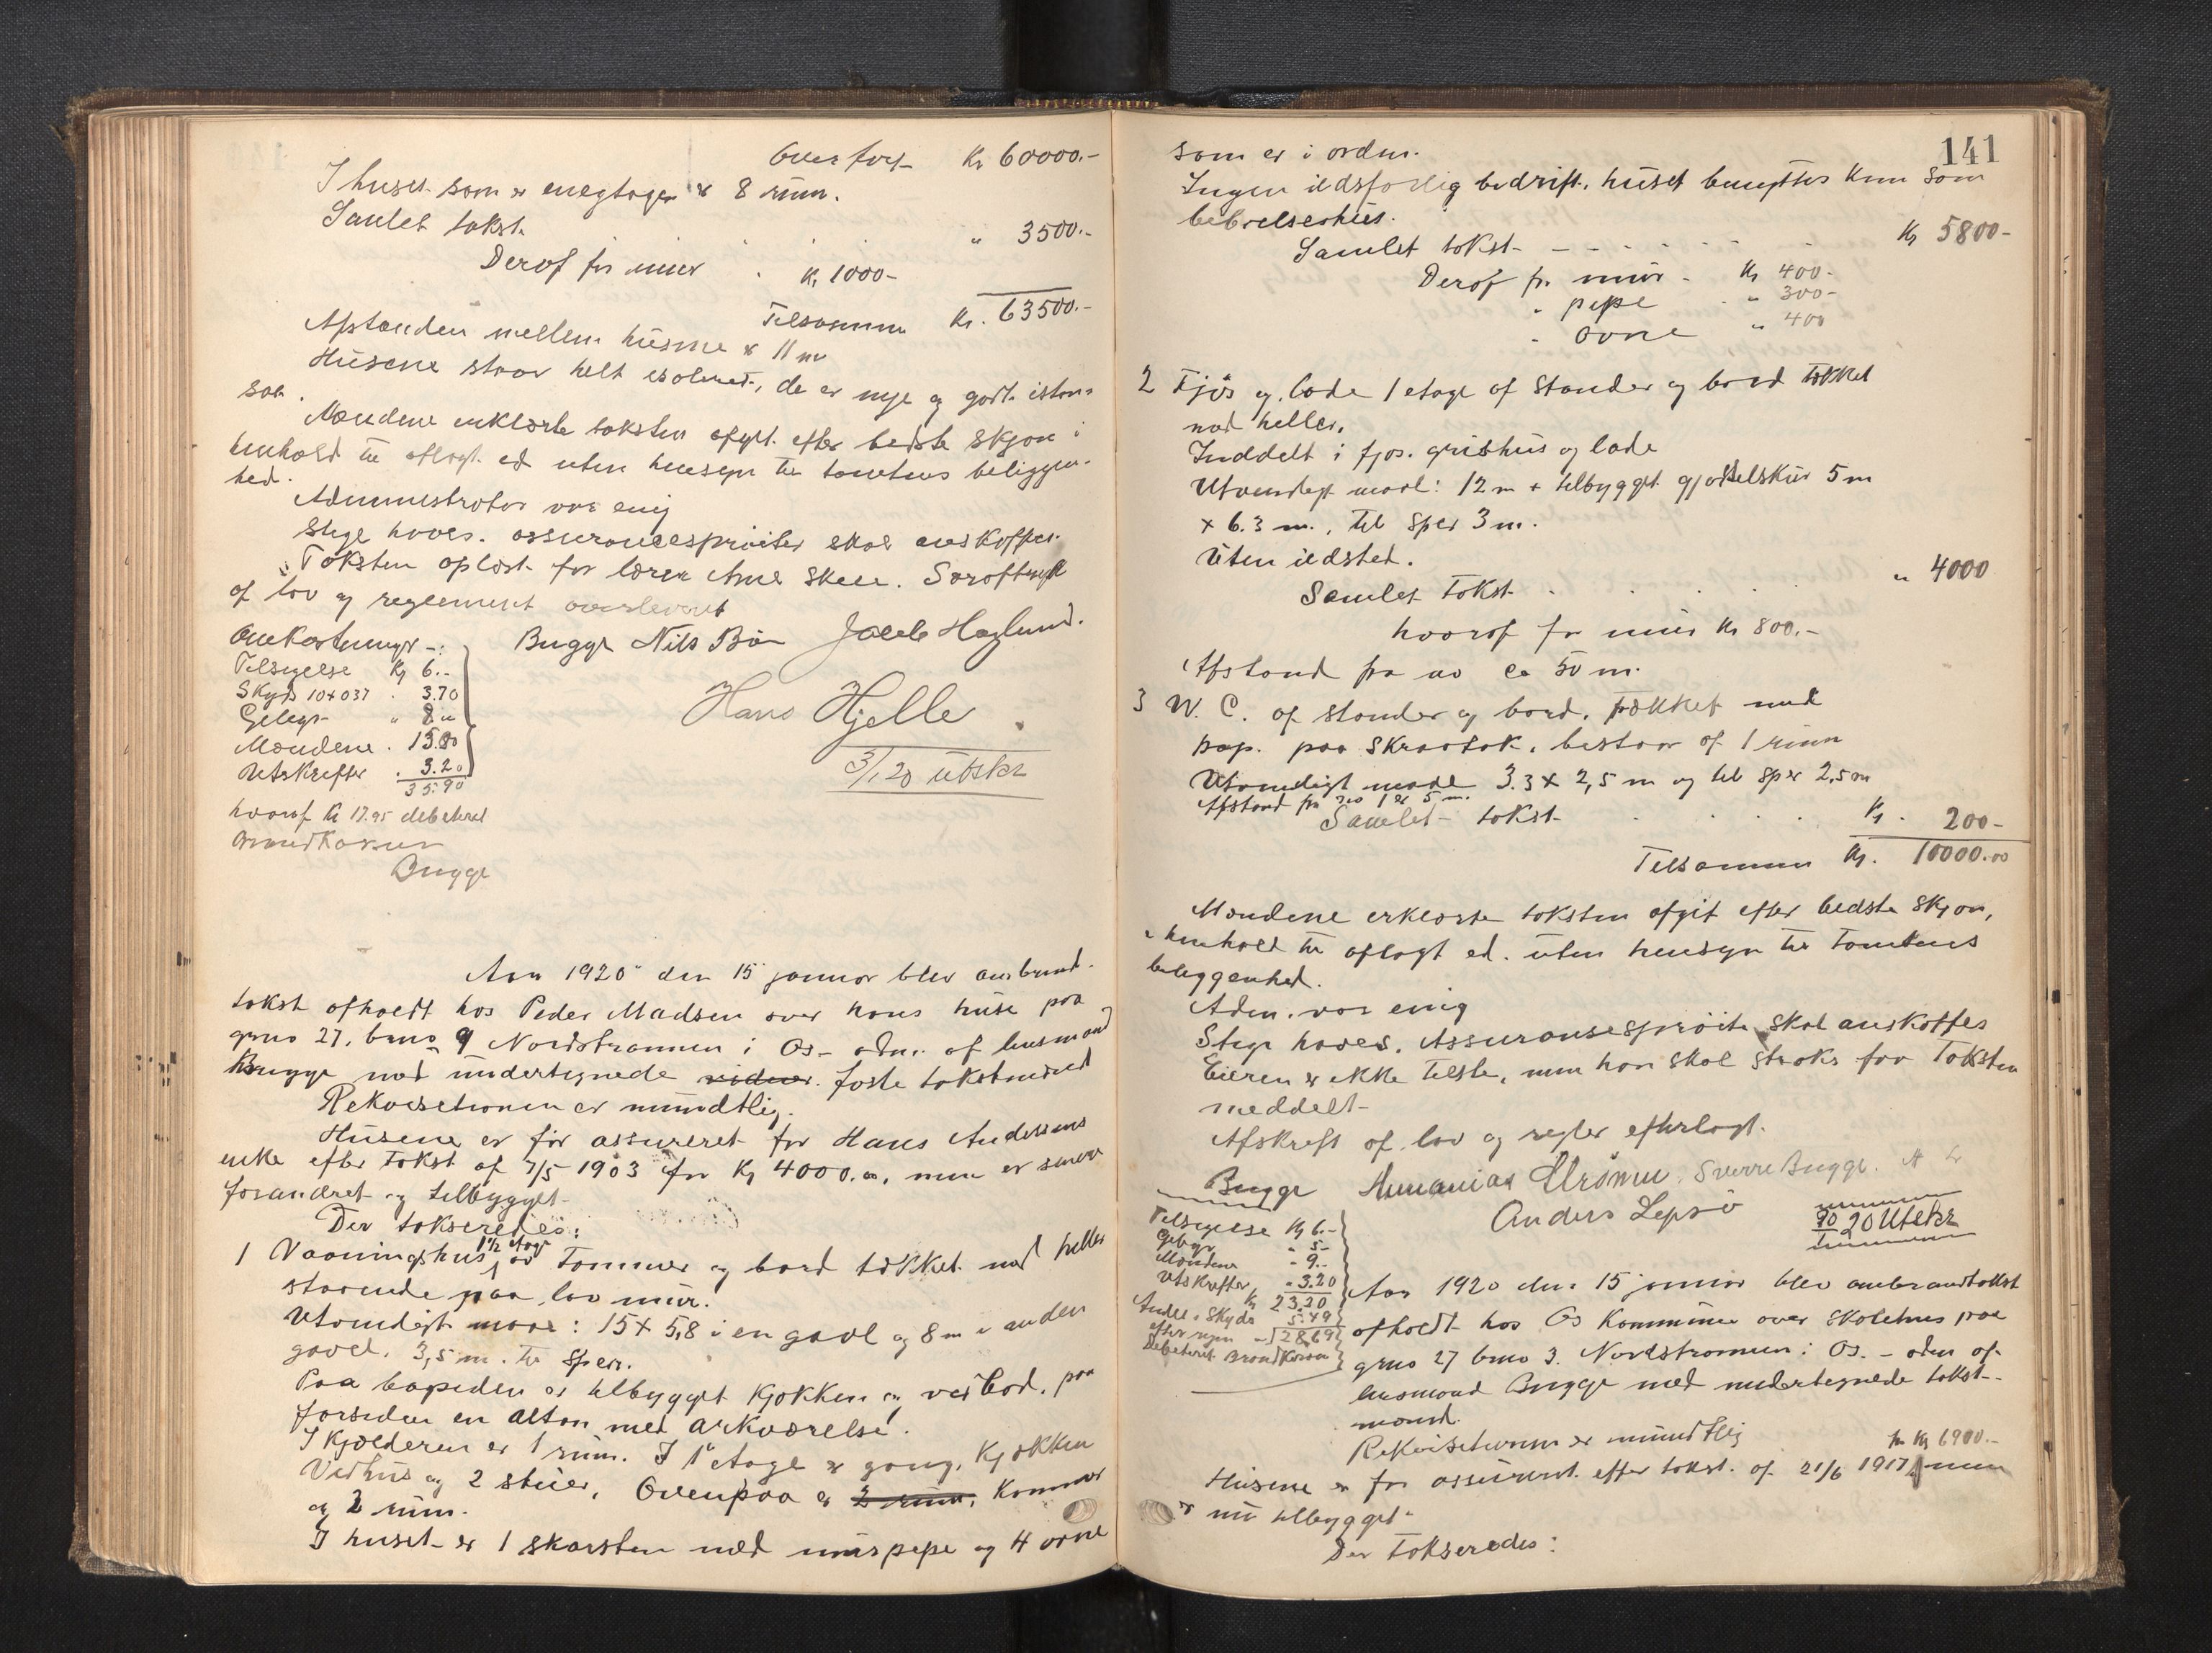 Overført Kr 60000.-
I huset som er enegtages er 8 rum.
Samlet takst. " 3500.-
Derof for mur Kr 1000-
Tilsammen Kr. 63500.-
Afstanden mellem husene er 11 m
Husene staar helt isoleret, de er nye og godt istan-
saa.
Mændene erklærte taksten afgit efter bedste skjøn i
henhold til aflagt ed uten hensyn til tomtens beliggen-
hed.
Administrator var enig
Stige haves. assurancesprøiter skal anskaffes.
Taksten oplæst for lærer Arne Skeie. Særaftryk
af lov og reglement overleveret
Bugge Nils Bø Jacob Haglund.
Hans Hjelle
3/1 20 utskr
Omkostninger:
Tilsigelse Kr 6.-
Skyds 10 x 037 . 3.70
Gebyr - " 8 "
Mændene . 15.00
Utskrifter . 3.20
35.90
hvoraf Kr 17.95 debiteret
Brandkassen
Bugge
Aar 1920 den 15 januar blev ombrand-
takst afholdt hos Peder Madsen over hans huse paa
gno 27. bno 9 Nordstrømmen i Os - adm. af lensmand
Bugge med undertegnede faste takstmænd
Rekvisitionen er mundtlig.
Husene er før assureret for Hans Andersens
enke efter takst af 7/5 1903 for Kr 4000.00, men er senere
forandret og tilbygget.
Der takseredes:
1 Vaaningshus 1 1/2 etage av Tømmer og bord tækket med heller
staaende paa lav mur.
Utvendigt maal: 15 x 5,8 i en gavl og 8 m i anden
gavl. 3,5 m. til sper.
Paa bagsiden er tilbygget kjøkken og vedbod, paa
forsiden en altan med arkværelse.
I kjælderen er 1 rum. I 1ste etage er gang, kjøkken
Vedhus og 2 stuer. Ovenpaa er 2 rum, kammer
og 2 rum.
I huset er 1 skorsten med murpipe og 4 ovne
141
som er i orden.
Ingen ildsfarlig bedrift, huset benyttes kun som
beboelseshus.
Samlet takst - - - - - Kr 5800-
Derof for mur - Kr 400-
" pipe . " 300-
" ovne " 400
2 Fjøs og lade 1 etage af stander og bord tækket
med heller.
Inddelt i fjøs. grishus og lade
Utvendigt maal: 12 m + tilbygget gjødselskur 5 m
x 6.3 m., til sper 3 m.
Uten ildsted.
Samlet takst . . . . " 4000
hvorof for mur Kr 800.-
Afstand fra no ca 50 m.
3 W. C. af stander og bord, tækket med
pap. paa skraatak, bestaar af 1 rum
Utvendigt maal 3.3 x 2,5 m og til sper 2,5 m
Afstand fra no 1 er 5 m.
Samlet takst . . . . Kr. 200-
Tilsammen Kr. 10000.00
Mændene erklærte taksten afgit efter bedste skjøn,
i henhold til aflagt ed. uten hensyn til tomtens
beliggenhed.
Adm. var enig
Stige haves. Assuransesprøite skal anskaffes
Eieren er ikke tilste, men han skal straks faa taksten
meddelt-
Afskrift af lov og regler efterlagt.
Bugge Sverre Bugge.
Anders Lepsø
20 Utskr
Tilsigelse Kr 6.-
Gebyr " 5-
Mændene " 9.-
Utskrifter " 3.20
Kr 23.20
Andel i Skyds 5.49
28,69
Debiteret Brandkassen
Aar 1920 den 15 januar blev ombrandtakst
afholdt hos Os Kommune over skolehus paa
gno 27 bno 3. Nordstrømmen i Os. - adm af
lensmand Bugge med undertegnede takst-
mænd.
Rekvisitionen er mundtlig
for Kr 6900.-
Husene er før assureret efter takst. af 21/6 1917, men
er nu tilbygget.
Der takseredes: